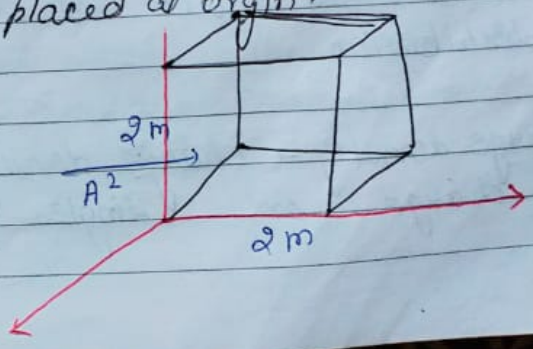 placed at origin.
2m
A²
2m